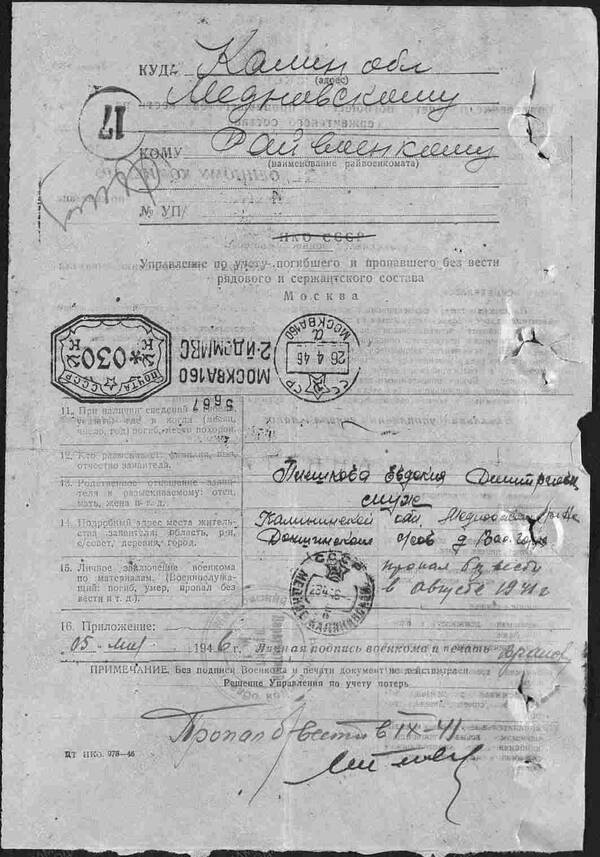 КУДА Калин обл
(адрес)
Медновскому
17
КОМУ Райвоенкому
(наименование райвоенкомата)
№ УП/
НКО СССР
Управление по учету погибшего и пропавшего без вести
рядового и сержантского состава
Москва
ПОЧТА СССР
К *030 К
МОСКВА 160
2-ИДМ/МВС
5667
МОСКВА 160
26 4 46
СССР
11. При наличии сведений
указать где и когда (месяц,
число, год) погиб, место похорон
12. Кто разыскивает: фамилия, имя,
отчество заявителя.
Пиешкова Евдокия Дмитриевн
13. Родственное отношение заяви-
теля к разыскиваемому: отец,
мать, жена и т. д.
14. Подробный адрес места житель-
ства заявителя: область, р-н,
с/совет, деревня, город.
Калининской обл, Медновский
15. Личное заключение военкома
по материалам. (Военнослужа-
щий: погиб, умер, пропал без
вести и т. д.).
пропал без вести
в августе 1941 г
СССР
МЕДНОЕ КАЛИНИНСКОЙ
16. Приложение:
05 мая 1946 г. Личная подпись военкома и печать
ПРИМЕЧАНИЕ. Без подписи Военкома и печати документ не действителен
Решение Управления по учету потерь
Пропал б/вести в IX-41
ЦТ НКО. 978—46